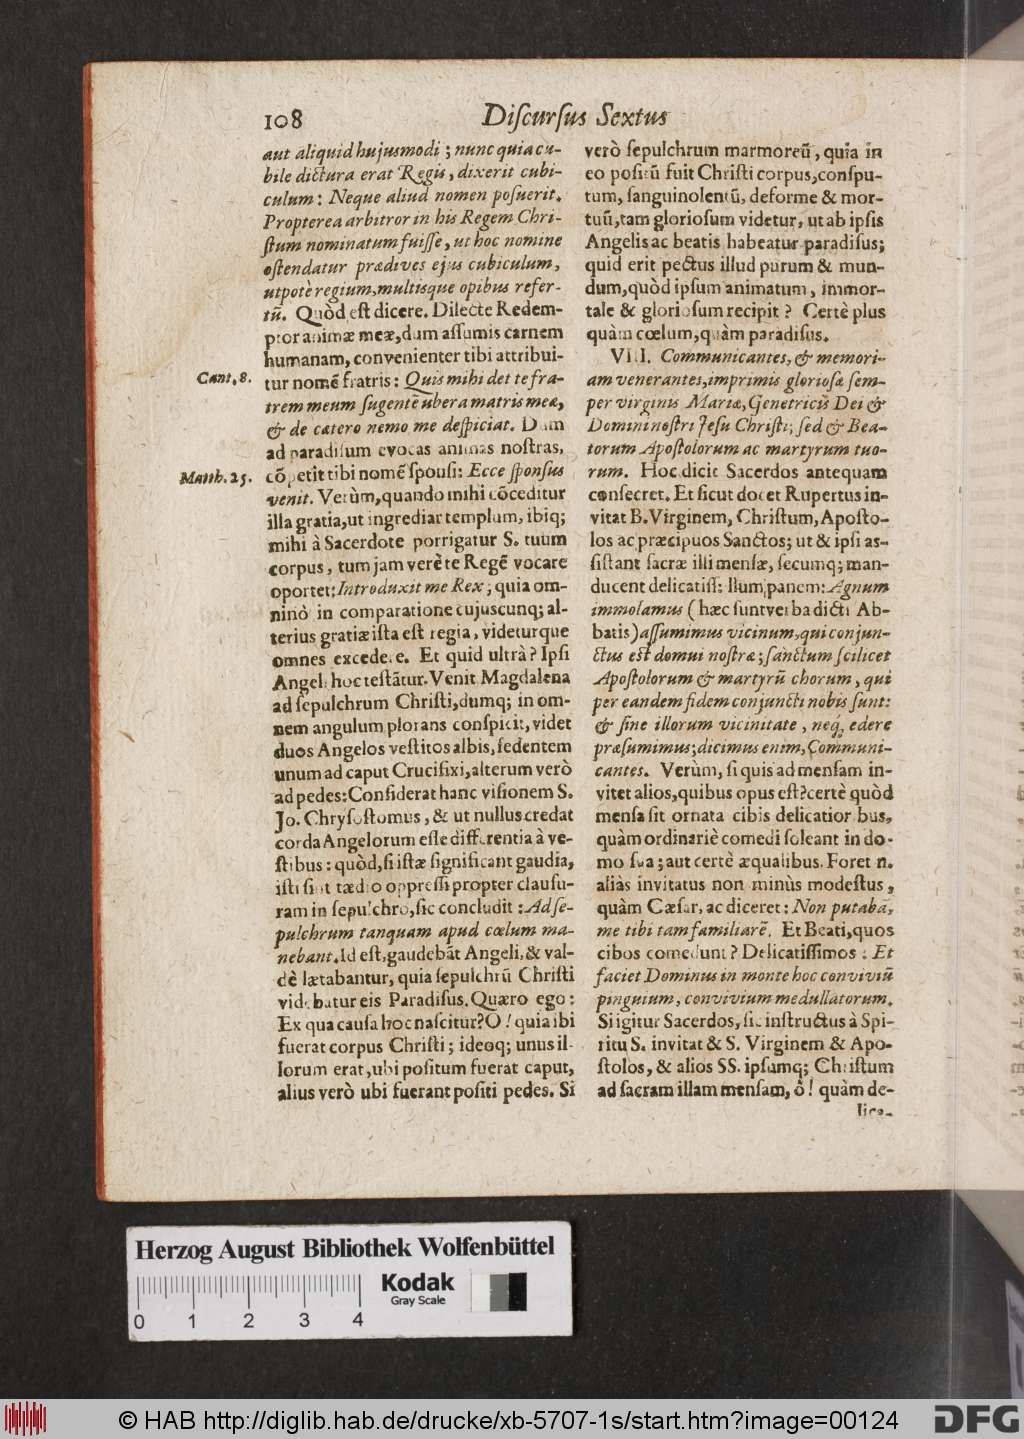 108
Diſcurſus Sextus
aut aliquid hujusmodi; nunc quia cu-
bile dictura erat Regis, dixerit cubi-
culum: Neque aliud nomen poſuerit.
Propterea arbitror in his Regem Chri-
ſtum nominatum fuiſſe, ut hoc nomine
oſtendatur prædives ejus cubiculum,
utpotè regium, multisque opibus refer-
tū. Quòd eſt dicere. Dilecte Redem-
ptor animæ meæ, dum aſſumis carnem
humanam, convenienter tibi attribui-
Cant. 8.
tur nomē fratris: Quis mihi det te fra-
trem meum ſugentē ubera matris meæ,
& de cætero nemo me deſpiciat. Dum
ad paradiſum evocas animas noſtras,
Matth. 25.
cōpetit tibi nomē ſponſi: Ecce ſponſus
venit. Verùm, quando mihi cōceditur
illa gratia, ut ingrediar templum, ibiq;
mihi à Sacerdote porrigatur S. tuum
corpus, tum jam verè te Regē vocare
oportet: Introduxit me Rex; quia om-
ninò in comparatione cujuscunq; al-
terius gratiæ iſta eſt regia, videturque
omnes excedere. Et quid ultrà? Ipſi
Angeli hoc teſtātur. Venit Magdalena
ad ſepulchrum Chriſti, dumq; in om-
nem angulum plorans conſpicit, videt
duos Angelos veſtitos albis, ſedentem
unum ad caput Crucifixi, alterum verò
ad pedes: Conſiderat hanc viſionem S.
Jo. Chryſoſtomus, & ut nullus credat
corda Angelorum eſſe differentia à ve-
ſtibus: quòd, ſi iſtæ ſignificant gaudia,
iſti ſint tædio oppreſſi propter clauſu-
ram in ſepulchro, ſic concludit: Ad ſe-
pulchrum tanquam apud cœlum ma-
nebant. Id eſt, gaudebāt Angeli, & val-
dè lætabantur, quia ſepulchrū Chriſti
videbatur eis Paradiſus. Quæro ego:
Ex qua cauſa hoc naſcitur? O! quia ibi
fuerat corpus Chriſti; ideoq; unus il-
lorum erat, ubi poſitum fuerat caput,
alius verò ubi fuerant poſiti pedes. Si
verò ſepulchrum marmoreū, quia in
eo poſitū fuit Chriſti corpus, conſpu-
tum, ſanguinolentū, deforme & mor-
tuū, tam glorioſum videtur, ut ab ipſis
Angelis ac beatis habeatur paradiſus;
quid erit pectus illud purum & mun-
dum, quòd ipſum animatum, immor-
tale & glorioſum recipit? Certè plus
quàm cœlum, quàm paradiſus.
VIII. Communicantes, & memori-
am venerantes, imprimis glorioſæ ſem-
per virginis Mariæ, Genetricis Dei &
Domini noſtri Jeſu Chriſti; ſed & Bea-
torum Apoſtolorum ac martyrum tuo-
rum. Hoc dicit Sacerdos antequam
conſecret. Et ſicut docet Rupertus in-
vitat B. Virginem, Chriſtum, Apoſto-
los ac præcipuos Sanctos; ut & ipſi as-
ſiſtant ſacræ illi menſæ, ſecumq; man-
ducent delicatiſſ: illum panem: Agnum
immolamus (hæc ſunt verba dicti Ab-
batis) aſſumimus vicinum, qui conjun-
ctus eſt domui noſtræ; ſanctum ſcilicet
Apoſtolorum & martyrū chorum, qui
per eandem fidem conjuncti nobis ſunt:
& ſine illorum vicinitate, neq; edere
præſumimus; dicimus enim, Communi-
cantes. Verùm, ſi quis ad menſam in-
vitet alios, quibus opus eſt? certè quòd
menſa ſit ornata cibis delicatioribus,
quàm ordinariè comedi ſoleant in do-
mo ſua; aut certè æqualibus. Foret n.
aliàs invitatus non minùs modeſtus,
quàm Cæſar, ac diceret: Non putabā,
me tibi tam familiarē. Et Beati, quos
cibos comedunt? Delicatiſſimos: Et
faciet Dominus in monte hoc conviviū
pinguium, convivium medullatorum.
Si igitur Sacerdos, ſic inſtructus à Spi-
ritu S. invitat & S. Virginem & Apo-
ſtolos, & alios SS. ipſumq; Chriſtum
ad ſacram illam menſam, ô! quàm de-
lica-
Herzog August Bibliothek Wolfenbüttel
Kodak
Gray Scale
0 1 2 3 4
© HAB http://diglib.hab.de/drucke/xb-5707-1s/start.htm?image=00124
DFG